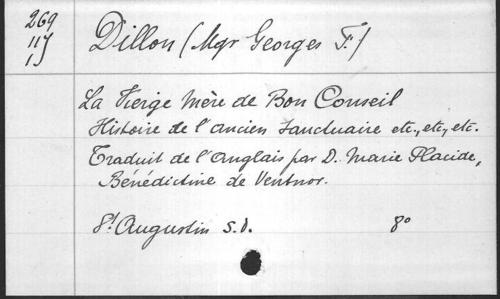 269
117
15
Dillon (Mgr Georges F.)
La Vierge Mère de Bon Conseil
Histoire de l'ancien Sanctuaire etc., etc., etc.
Traduit de l'Anglais par D. Marie Placide,
Bénédictine de Ventnor.
St Augustin s.d. 8º